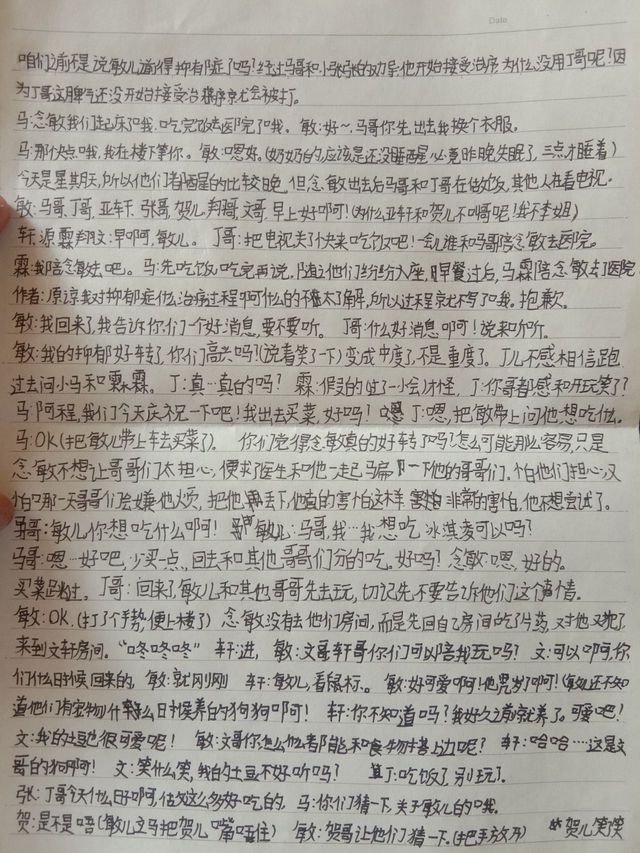 Date
咱们之前不是说敏儿得抑郁症了吗?经过马哥和小张张的劝导,他开始接受治疗,为什么没用丁哥呢?因
为丁哥这脾气还没开始接受治疗程序京尤会被打。
马:念敏我们起床了哦,吃完饭去医院了哦。 敏:好~,马哥你先出去我换个衣服。
马:那快点哦,我在楼下等你。 敏:嗯好。(奶奶的应该是还没睡醒,必竟昨晚失眠了,三点才睡着)
今天是星期天,所以他们都醒的比较晚,但念敏出去后马哥和丁哥在做饭,其他人在看电视。
敏:马哥、丁哥,亚轩、张哥,贺儿,翔哥,文哥,早上好啊!(为什么亚轩和贺儿不叫哥呢!我不李姐)
轩源霖翔文:早啊,敏儿。 丁哥:把电视关了快来吃饭吧!一会儿谁和马哥陪念敏去医院。
霖:我陪念敏去吧。 马:先吃饭,吃完再说,随之他们纷纷入座,早餐过后,马霖陪念敏去了医院
作者:原谅我对抑郁症什么治疗过程啊什么的不懂太了解,所以过程就不写了哦。抱歉。
敏:我回来了,我告诉你们一个好消息,要不要听。 丁哥:什么好消息啊!说来听听。
敏:我的抑郁好转了,你们高兴吗?(说着笑了一下)变成中度了,不是重度了。丁儿不感相信,跑
过去问小马和霖霖。 丁:真…真的吗? 霖:假的(过了一小会)才怪, 丁:你哥都感和开玩笑了?
马:阿程,我们今天庆祝一下吧!我出去买菜,好吗! 丁:嗯,把敏带上问他想吃什么。
马:OK(把敏儿带上车去买菜了)。 你们觉得念敏真的好转了吗?怎么可能那么容易,只是
念敏不想让哥哥们太担心,便求了医生和他一起马扁了一下他的哥哥们。怕他们担心,又
怕哪一天哥哥们会嫌他烦,把他再丢下,他真的害怕这样,害怕,非常的害怕,他不想尝试了。
马哥:敏儿你想吃什么啊! 敏儿:马哥,我…我想吃冰淇麦可以吗?
马哥:嗯…好吧,少买一点,回去和其他哥哥们分的吃。好吗? 念敏:嗯,好的。
买菜跳过。 丁哥:回来了,敏儿和其他哥哥先去玩,切记先不要告诉他们这个事情。
敏:OK,(打了个手势,便上楼了) 念敏没有去他们房间,而是先回自己房间吃了片药,
来到文轩房间。“咚咚咚” 轩:进, 敏:文哥轩哥你们可以陪我玩吗? 文:可以啊,你
们什么时候回来的, 敏:就刚刚 轩:敏儿,看鼠标。 敏:好可爱啊!他几岁了啊!(敏儿还不知
道他们有宠物)什么时候养的狗狗啊! 轩:你不知道吗?我好久之前就养了。可爱吧?
文:我的土豆也很可爱呢! 敏:文哥你怎么什么都能和食物搭上边呢? 轩:哈哈……这是文
哥的狗啊! 文:笑什么笑,我的土豆不好听吗? 丁:吃饭了,别玩了。
张:丁哥今天什么日子啊,做这么多好吃的, 马:你们猜一下,关于敏儿的哦。
贺:是不是唔(敏儿立马把贺儿嘴唔住) 敏:贺哥让他们猜一下。(把手放开) 贺儿笑笑